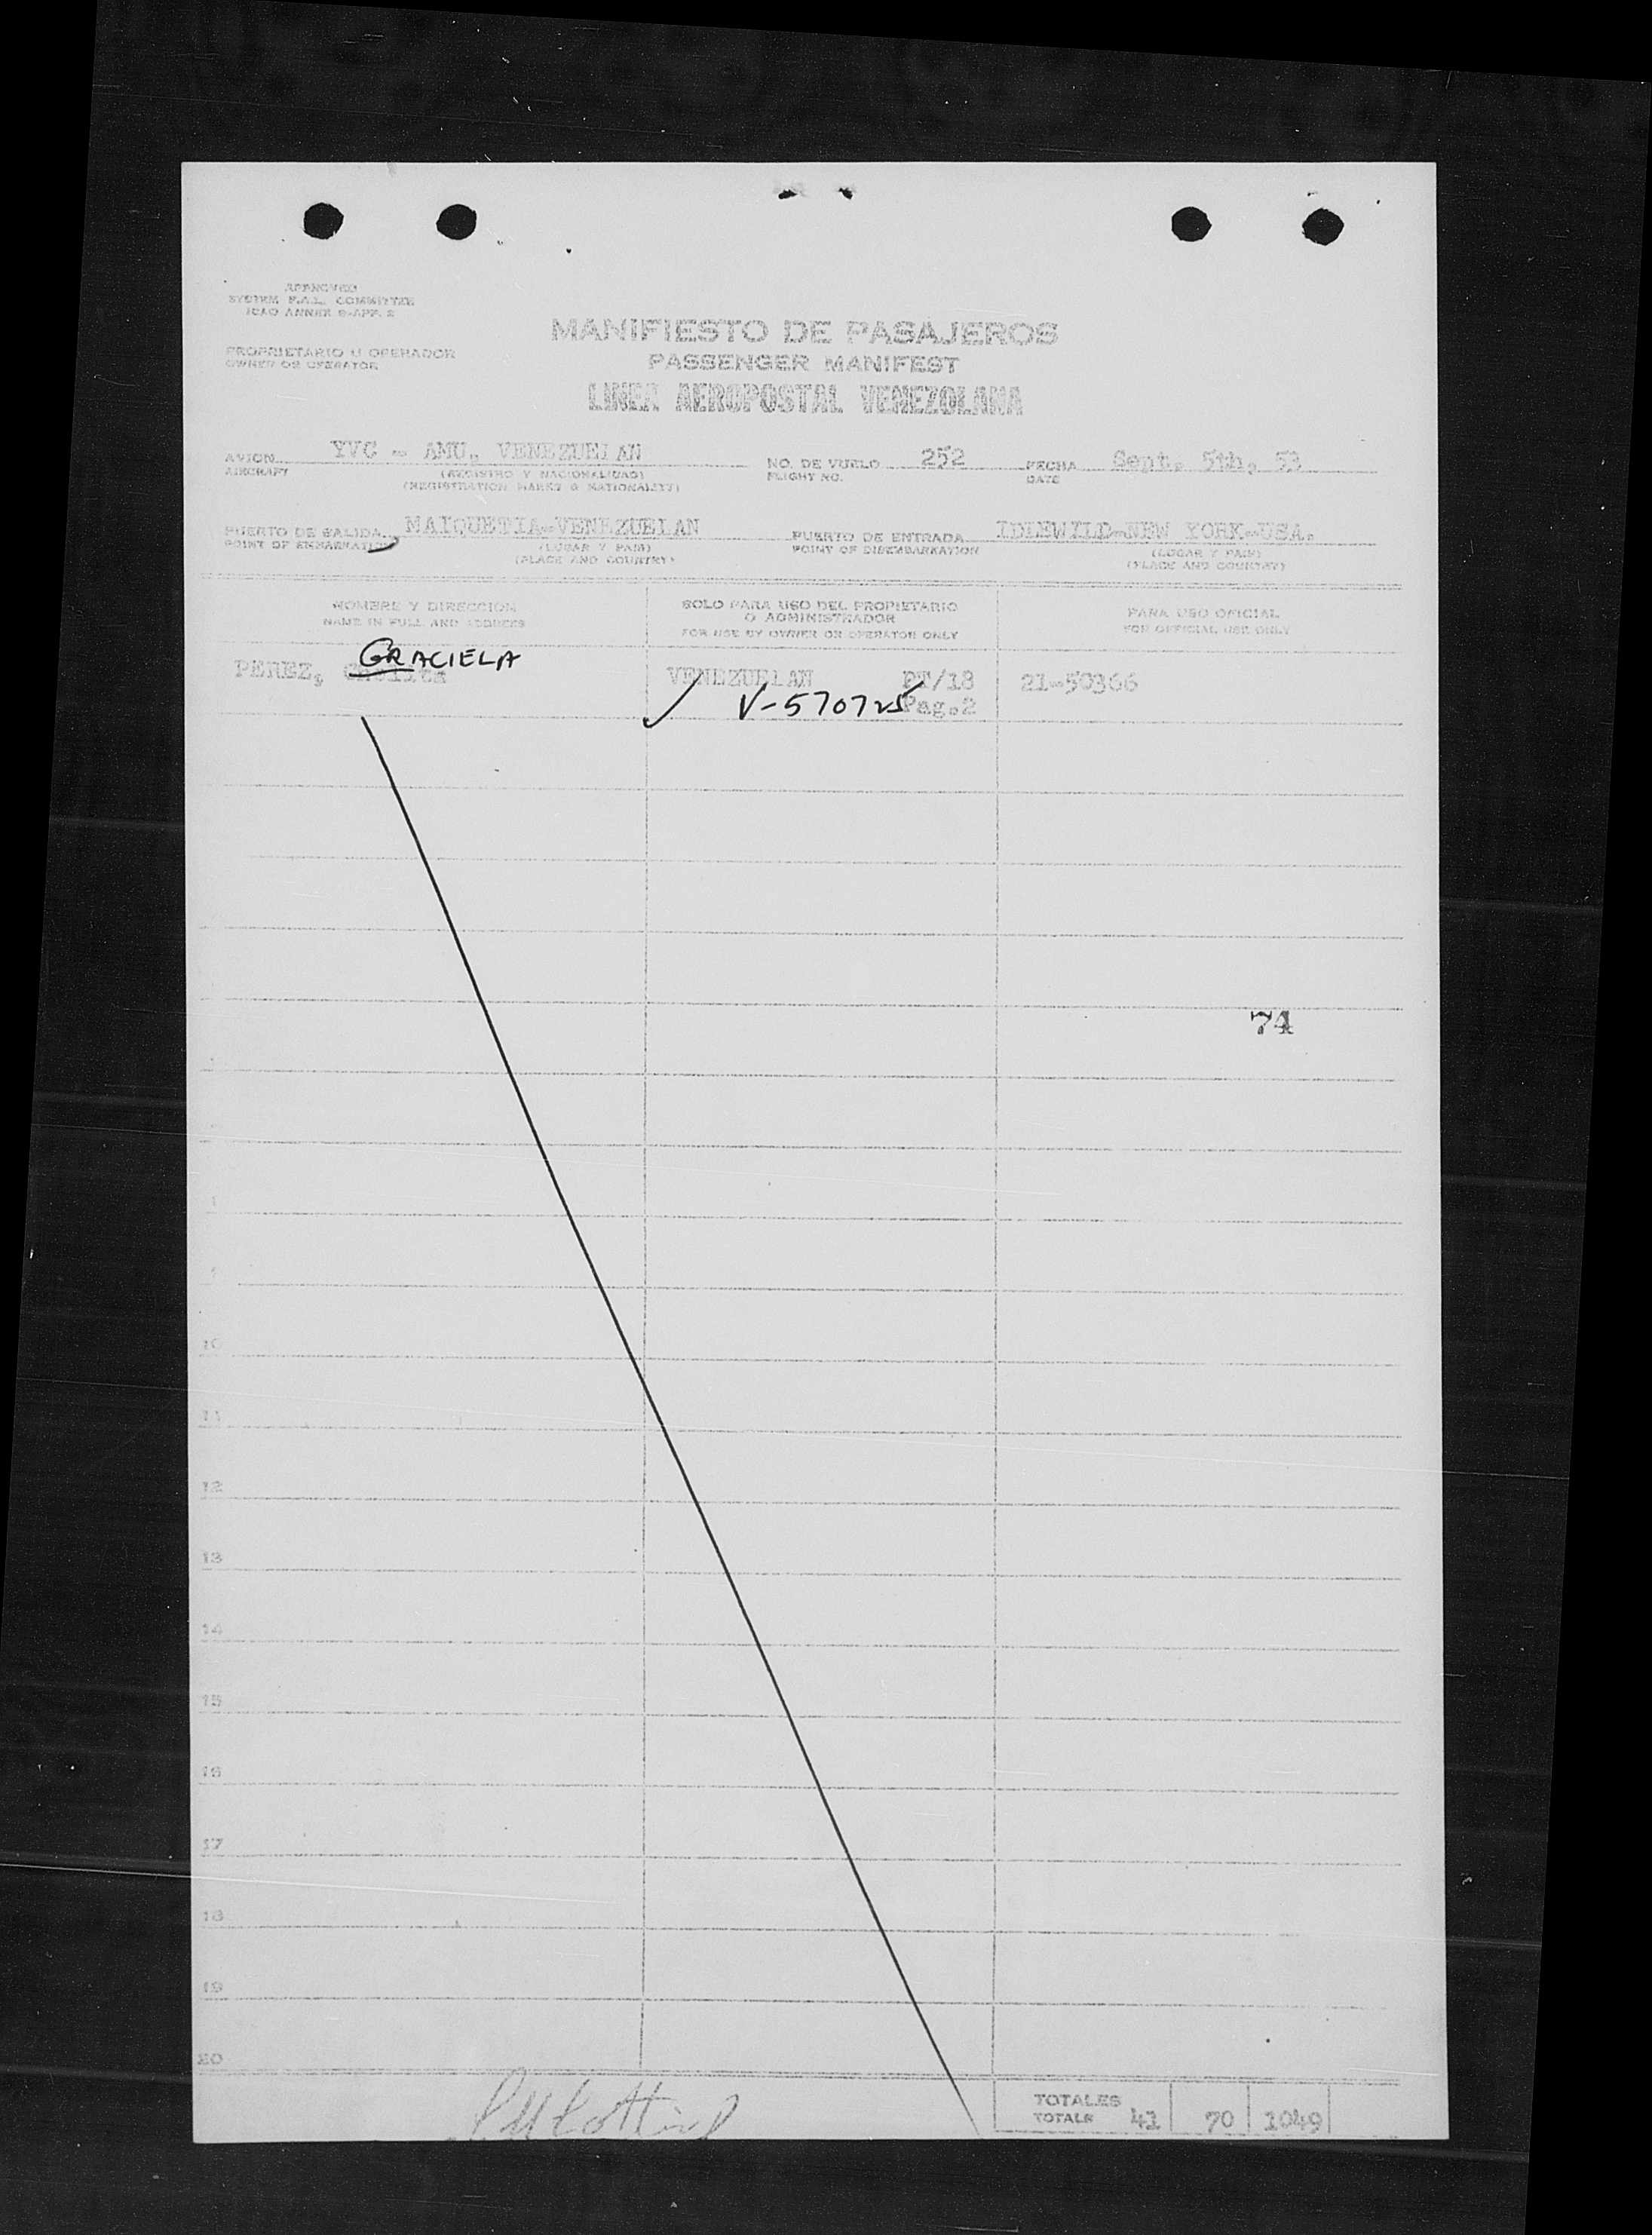 APPROVED
SYSTEM F.A.L. COMMITTEE
ICAO ANNEX 9-APP. 2
MANIFIESTO DE PASAJEROS
PASSENGER MANIFEST
PROPRIETARIO U OPERADOR
OWNER OR OPERATOR
LINEA AEROPOSTAL VENEZOLANA
AVION YVC - AMU, VENEZUELAN NO. DE VUELO 252 FECHA Sept. 5th, 53
AIRCRAFT (REGISTRO Y NACIONALIDAD) FLIGHT NO. DATE
(REGISTRATION MARKS & NATIONALITY)
PUERTO DE SALIDA MAIQUETIA-VENEZUELAN PUERTO DE ENTRADA IDLEWILD-NEW YORK-USA.
POINT OF EMBARKATION (LUGAR Y PAIS) POINT OF DISEMBARKATION (LUGAR Y PAIS)
(PLACE AND COUNTRY) (PLACE AND COUNTRY)
NOMBRE Y DIRECCION SOLO PARA USO DEL PROPIETARIO PARA USO OFICIAL
O ADMINISTRADOR
NAME IN FULL AND ADDRESS FOR USE BY OWNER OR OPERATOR ONLY FOR OFFICIAL USE ONLY
GRACIELA
PEREZ, VENEZUELAN PT/18 21-50366
V-570725 Pag.2
74
10
11
12
13
14
15
16
17
18
19
20
TOTALES
TOTALS 41 70 1049